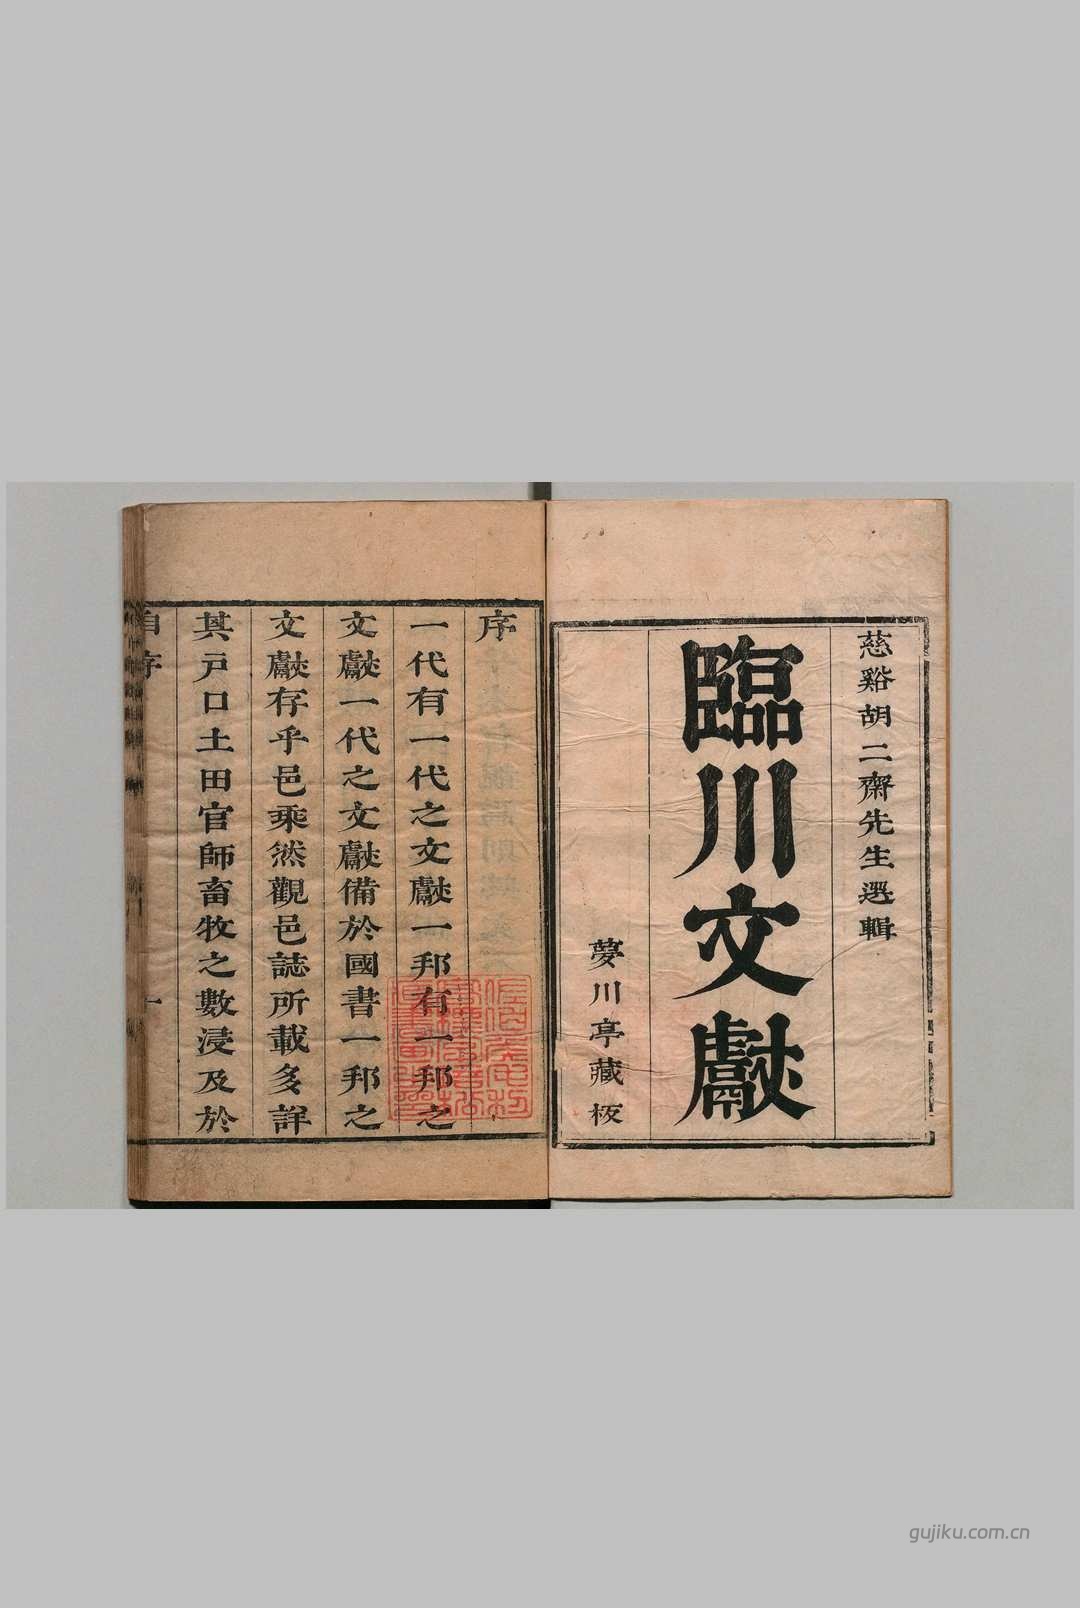 慈谿胡二齋先生選輯
臨川文獻
夢川亭藏板
序
一代有一代之文獻一邦有一邦之
文獻一代之文獻備於國書一邦之
文獻存乎邑乘然觀邑誌所載多詳
其戸口土田官師畜牧之數浸及於
自序
一
gujiku.com.cn